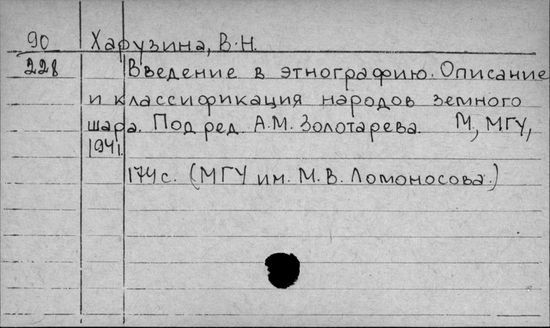 90 Харузина, В.Н.
228 Введение в этнографию. Описание
и классификация народов земного
шара. Под ред. А.М. Золотарева. М., МГУ,
1941.
174с. (МГУ им. М.В. Ломоносова.)